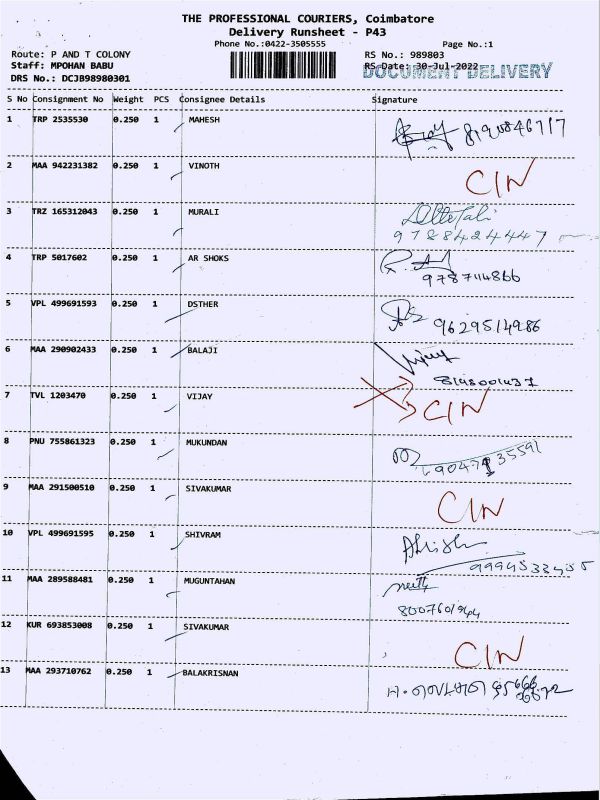 THE PROFESSIONAL COURIERS, Coimbatore
Delivery Runsheet - P43
Phone No.:0422-3505555 Page No.:1
Route: P AND T COLONY RS No.: 989803
Staff: MPOHAN BABU RS Date: 30-Jul-2022
DOCUMENT DELIVERY
DRS No.: DCJB98980301
S No Consignment No Weight PCS Consignee Details Signature
1 TRP 2535530 0.250 1 MAHESH
2 MAA 942231382 0.250 1 VINOTH CIN
3 TRZ 165312043 0.250 1 MURALI
9788424447
4 TRP 5017602 0.250 1 AR SHOKS
5 VPL 499691593 0.250 1 DSTHER 9629514986
6 MAA 290902433 0.250 1 BALAJI Vijay
8198001437
7 TVL 1203470 0.250 1 VIJAY CIN
8 PNU 755861323 0.250 1 MUKUNDAN
9 MAA 291500510 0.250 1 SIVAKUMAR CIN
10 VPL 499691595 0.250 1 SHIVRAM
11 MAA 289588481 0.250 1 MUGUNTAHAN
12 KUR 693853008 0.250 1 SIVAKUMAR CIN
13 MAA 293710762 0.250 1 BALAKRISNAN